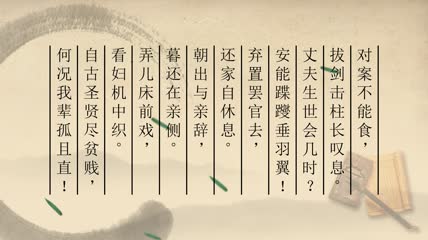 对案不能食，
拔剑击柱长叹息。
丈夫生世会几时？
安能蹀躞垂羽翼！
弃置罢官去，
还家自休息。
朝出与亲辞，
暮还在亲侧。
弄儿床前戏，
看妇机中织。
自古圣贤尽贫贱，
何况我辈孤且直！